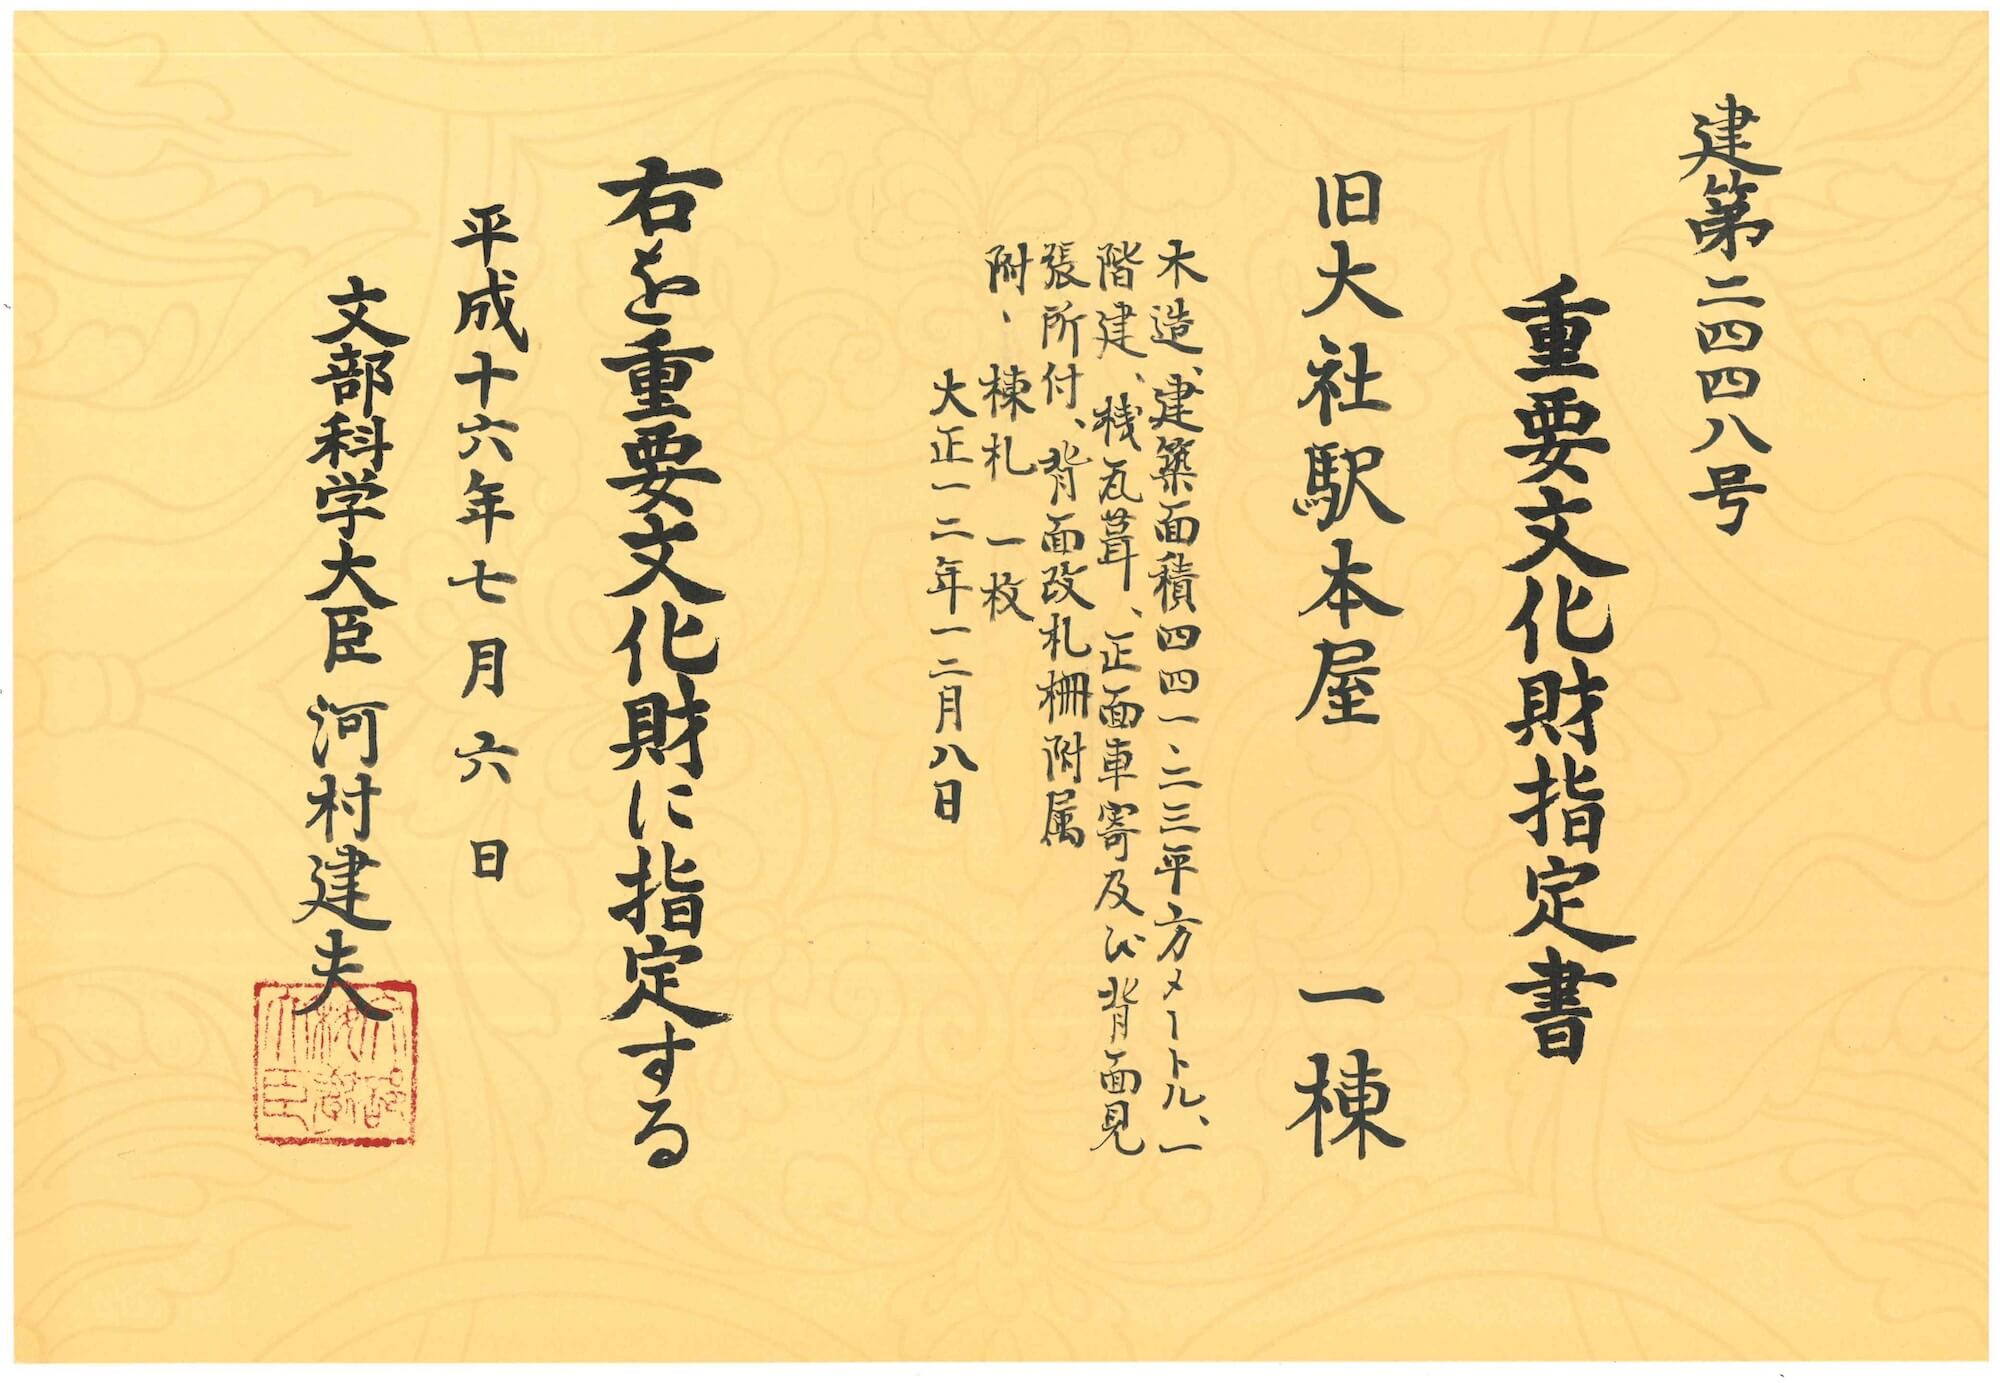 建第二四四八号
重要文化財指定書
旧大社駅本屋 一棟
木造、建築面積四四一・二三平方メートル、一
階建、桟瓦葺、正面車寄及び背面見
張所付、背面改札柵附属
附、棟札 一枚
大正一二年一二月八日
右を重要文化財に指定する
平成十六年七月六日
文部科学大臣 河村建夫